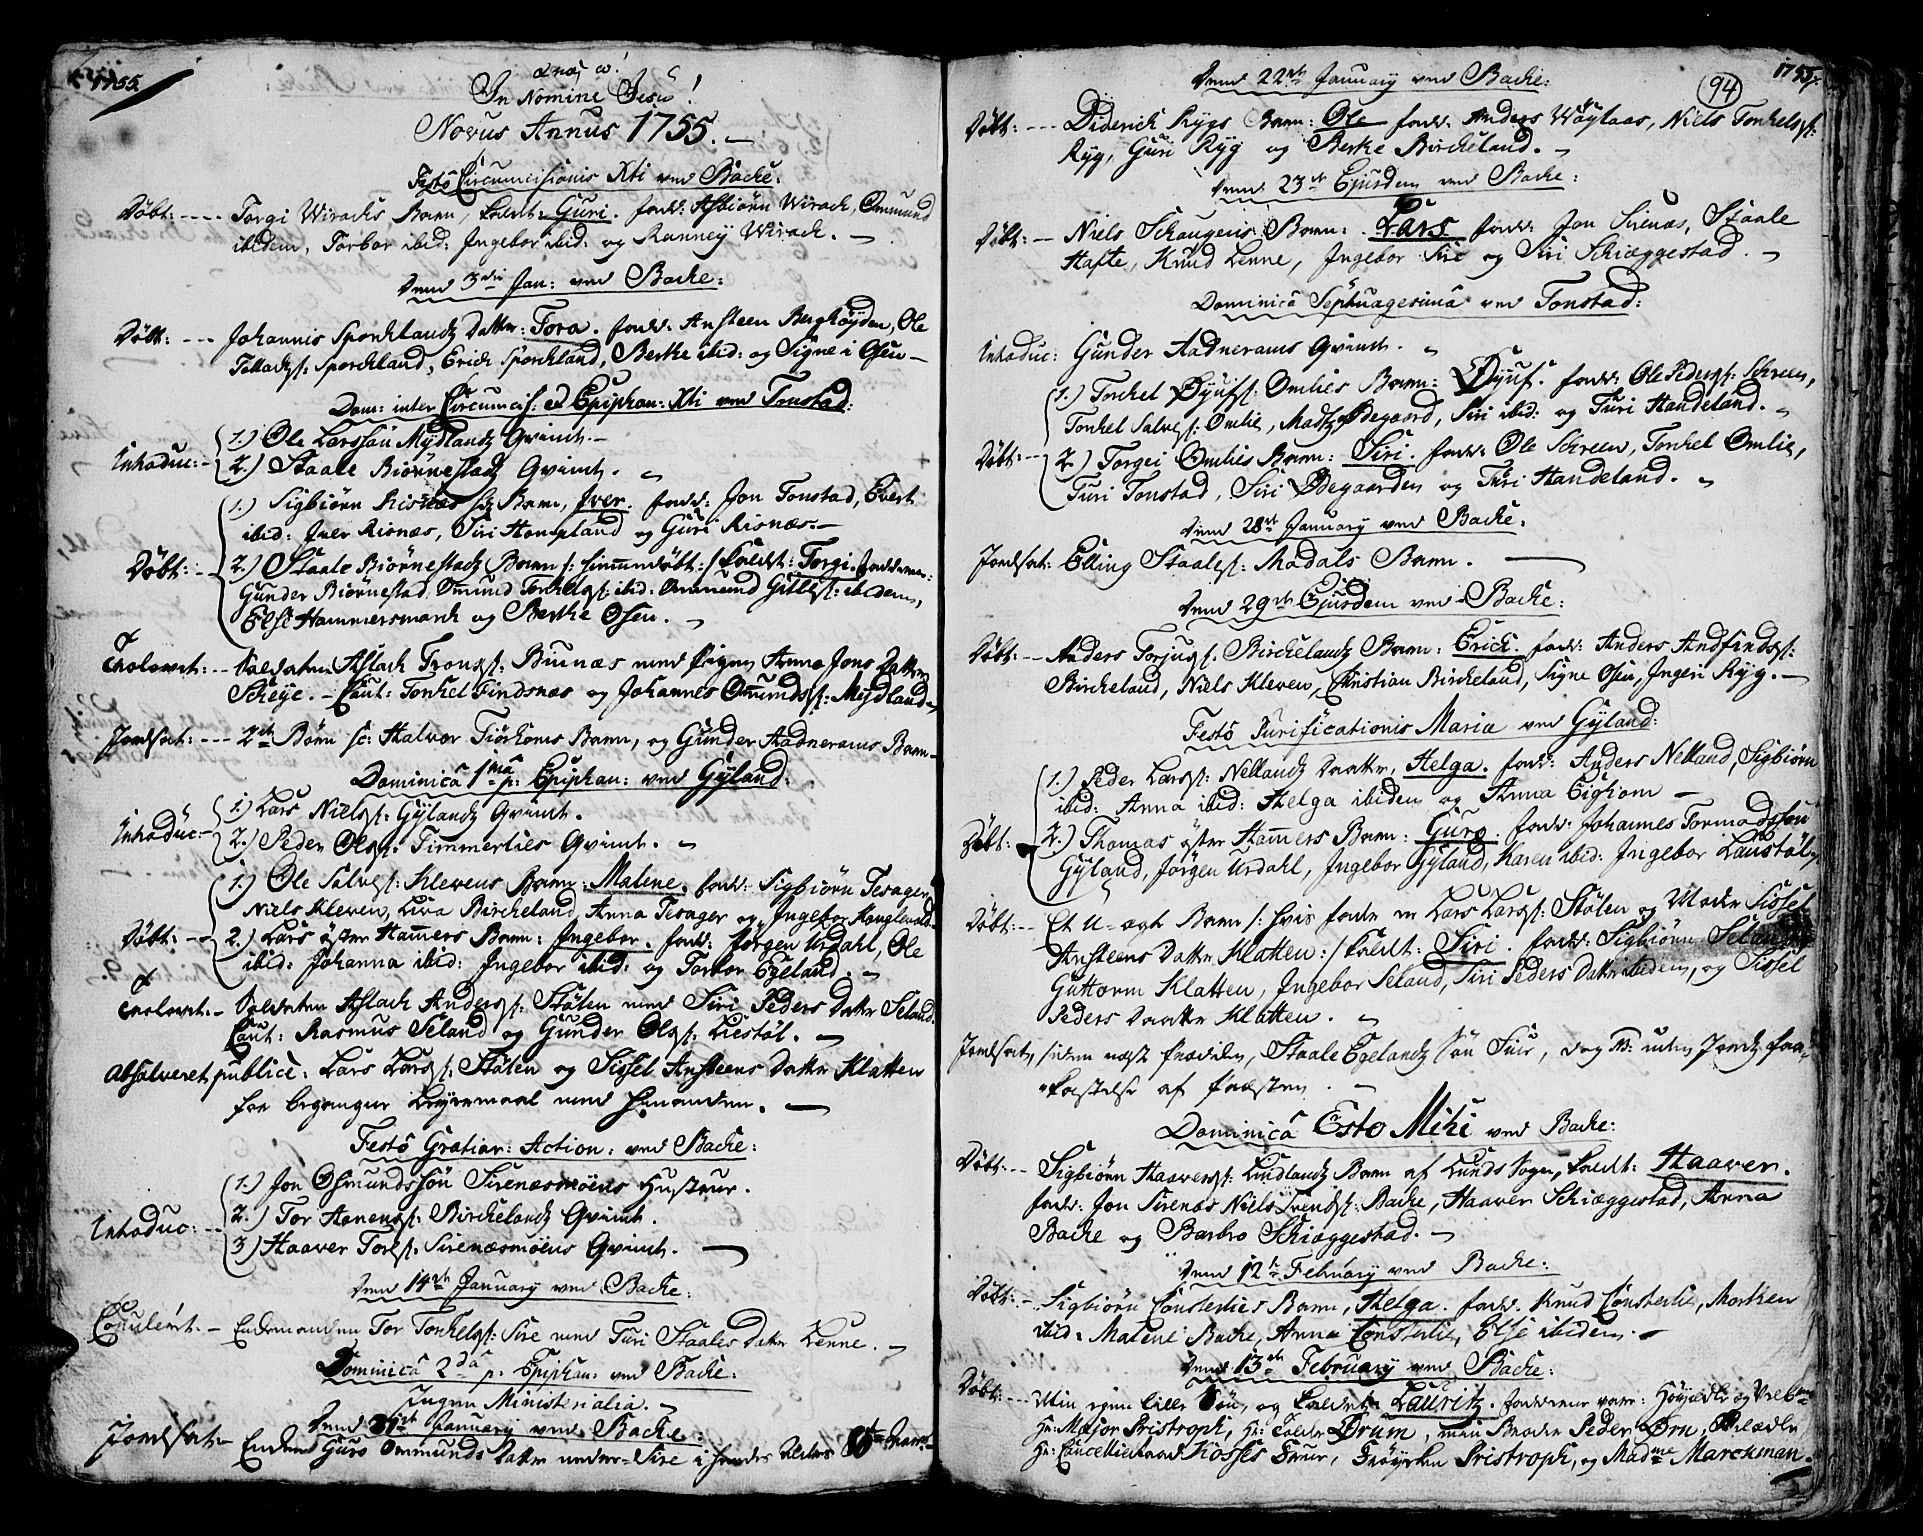 1755.
In Nomine Jesu!
Novus Annus 1755.
Festo Circumcisionis Xti ved Backe.
Døbt: Torgi Wirachs Barn, kaldt: Guri. fadd: Asbiørn Wirach, Ommund
ibidem, Torbor ibid: Ingebor ibid: og Ranney Wirach.
Dend 3die Jan: ved Backe:
Døbt: Johannis Sporchlands Datter: Tora. fadd: Ansteen Berghøyden, Ole
Tollachs: Sporchland, Erich Sporchland, Berte ibid: og Signe i Osen
Dom: inter Circumcis: et Epiphan: Xti ved Tonstad:
1.) Ole Larssøn Mydlands Qvinde.
Introduc: 2.) Staale Biørnestads Qvinde.
1.) Sigbiørn Risnæs Barn, Iver. fadd: Jon Tonstad, Evert
ibid: Iver Risnæs, Siri Hompland og Guri Risnæs.
Døbt: 2.) Staale Biørnestads Barn /: hiemmedøbt :/ kaldet: Torgi.
Gunder Biørnestad, Omund Tonhels: ibid. Ommund Gitles: ibidem,
Else Hammersmarch og Berthe Osen.
Trolovet: Soldaten Aslach Trons: Biunæs med Pigen Anna Jons Datter
Scheye. Caut: Tonkel Findsnæs og Johannes Omunds: Mydland.
Jordfæst: 2de Børn sc: Halvor Fiörhoms Barn, og Gunder Aadnerams Barn
Dominica 1ma p: Epiphan: ved Gyland:
1.) Lars Niels: Gylands Qvinde.
Introduc: 2.) Peder Ols: Timmerlies Qvinde.
1.) Ole Salves: Klevens Barn: Malene. fadd: Sigbiørn Tesager,
Niels Kleven, Liva Bircheland, Anna Tesager og Ingebor
Døbt: 2.) Lars øster Hamers Barn: Ingebor. fadd: Jørgen Urdahl, Ole
ibid: Johanna ibid: Ingebor ibid: og Torbor Egeland.
Trolovet: Soldaten Aslach Anders: Støten med Siri Peders Datter Seland.
Caut: Rasmus Seland og Gunder Ols: Liestøl.
Absolveret publice: Lars Lars: Støten og Sissel Ansteens Datter Klatten
for begangne Leyermaal med hinanden.
Festo Gratiar: Action: ved Backe:
1.) Jon Osmundssøn Sirenæsmoens Hustrue.
2.) Tor Aanens: Birchelands Qvinde.
Introduc: 3) Haaver Tores: Sirenæsmoens Qvinde.
Dend 14de January ved Backe:
Copuleret: Enkemanden Tor Tonkels: Sire med Turi Staales Datter Lenne.
Dominica 2da p. Epiphan: ved Backe:
Ingen Ministerialia.
Dend 21de January ved Backe:
Jordfæst Enken Guro Ommunds Datter Sire i hendes Alders
1755.
94
Dend 22de January ved Backe:
Døbt: Diderich Rygs Barn: Ole fadd: Anders Wøylaas, Niels Tonkels:
Ryg, Guri Ryg og Berte Bircheland.
Dend 23de Ejusdem ved Backe:
Døbt: Niels Schougens Barn: Lars fadd: Jon Sirenæs, Staale
Hafte, Knud Lenne, Ingebor Sire og Siri Schiæggestad.
Dominica Septuagesima ved Tonstad:
Introduc: Gunder Aadnerams Qvinde.
1.) Torchel Øyufs: Omlies Barn: Øyuf. fadd: Ole Peders: Schreen,
Tonkel Salves: Omlie, Mads Ødegaard, Siri ibid: og Turi Handeland.
Døbt: 2.) Torgei Omlies Barn: Siri. fadd: Ole Schreen, Tonkel Omlie,
Turi Tonstad, Siri Ødegaarden og Turi Handeland.
Dend 28de January ved Backe:
Jordfæst: Elling Staales: Modals Barn.
Dend 29de Ejusdem ved Backe:
Døbt: Anders Torjus: Birchelands Barn: Erich. fadd: Anders Andfinds:
Bircheland, Niels Kleven, Christian Bircheland, Signe Osen, Ingeri Ryg.
Festo Purificationis Mariæ ved Gyland:
1.) Peder Lars: Nellands Daatter, Helga. fadd: Anders Nelland, Sigbiørn
ibid: Anna ibid: Helga ibidem og Anna Eighom
Døbt: 2.) Thomas øster Hamers Barn: Guro. fadd: Johannes Tormodssøn
Gyland, Jørgen Urdahl, Ingebor Gyland, Karen ibid: Ingebor Launstøl
Døbt: Et U-ægte Barn /: hvis fader er Lars Lars: Støten og Moder Sissel
Ansteens Datter Klatten :/ kaldt: Siri. fadd: Sigbiørn Seland
Guttorm Klatten, Ingebor Seland, Siri Peders Datter ibidem, og Sissel
Peders Daatter Klatten.
Jordfæst, siden næst Præken, Staale Egelands Søn
kastelse af Præsten.
Dominica Esto Mihi ved Backe:
Døbt: Sigbiørn Haavers: Lundlands Barn af Lunds Sogn, kaldt: Haaver.
fadd: Jon Sirenæs Niels Trends: Backe, Haaver Schiæggestad, Anna
Backe og Barbro Schiæggestad.
Dend 12te February ved Backe:
Døbt: Sigbiørn Consterlies Barn, Helga. fadd: Knud Consterlie, Morthen
ibid: Malene Backe, Anna Consterlie, Else ibidem.
Dend 13de February ved Backe:
Døbt: Min egen lille Søn, og kaldet: Lauritz. fadderne vare: Høyædle og Velb:
Hr: Major Pristroph, Hr: Drum, min Broder Peder Ørn, Velædle
Hr: Cancellieraad Kosses Frue, Frøyken Pristroph, og Madme Marckman.